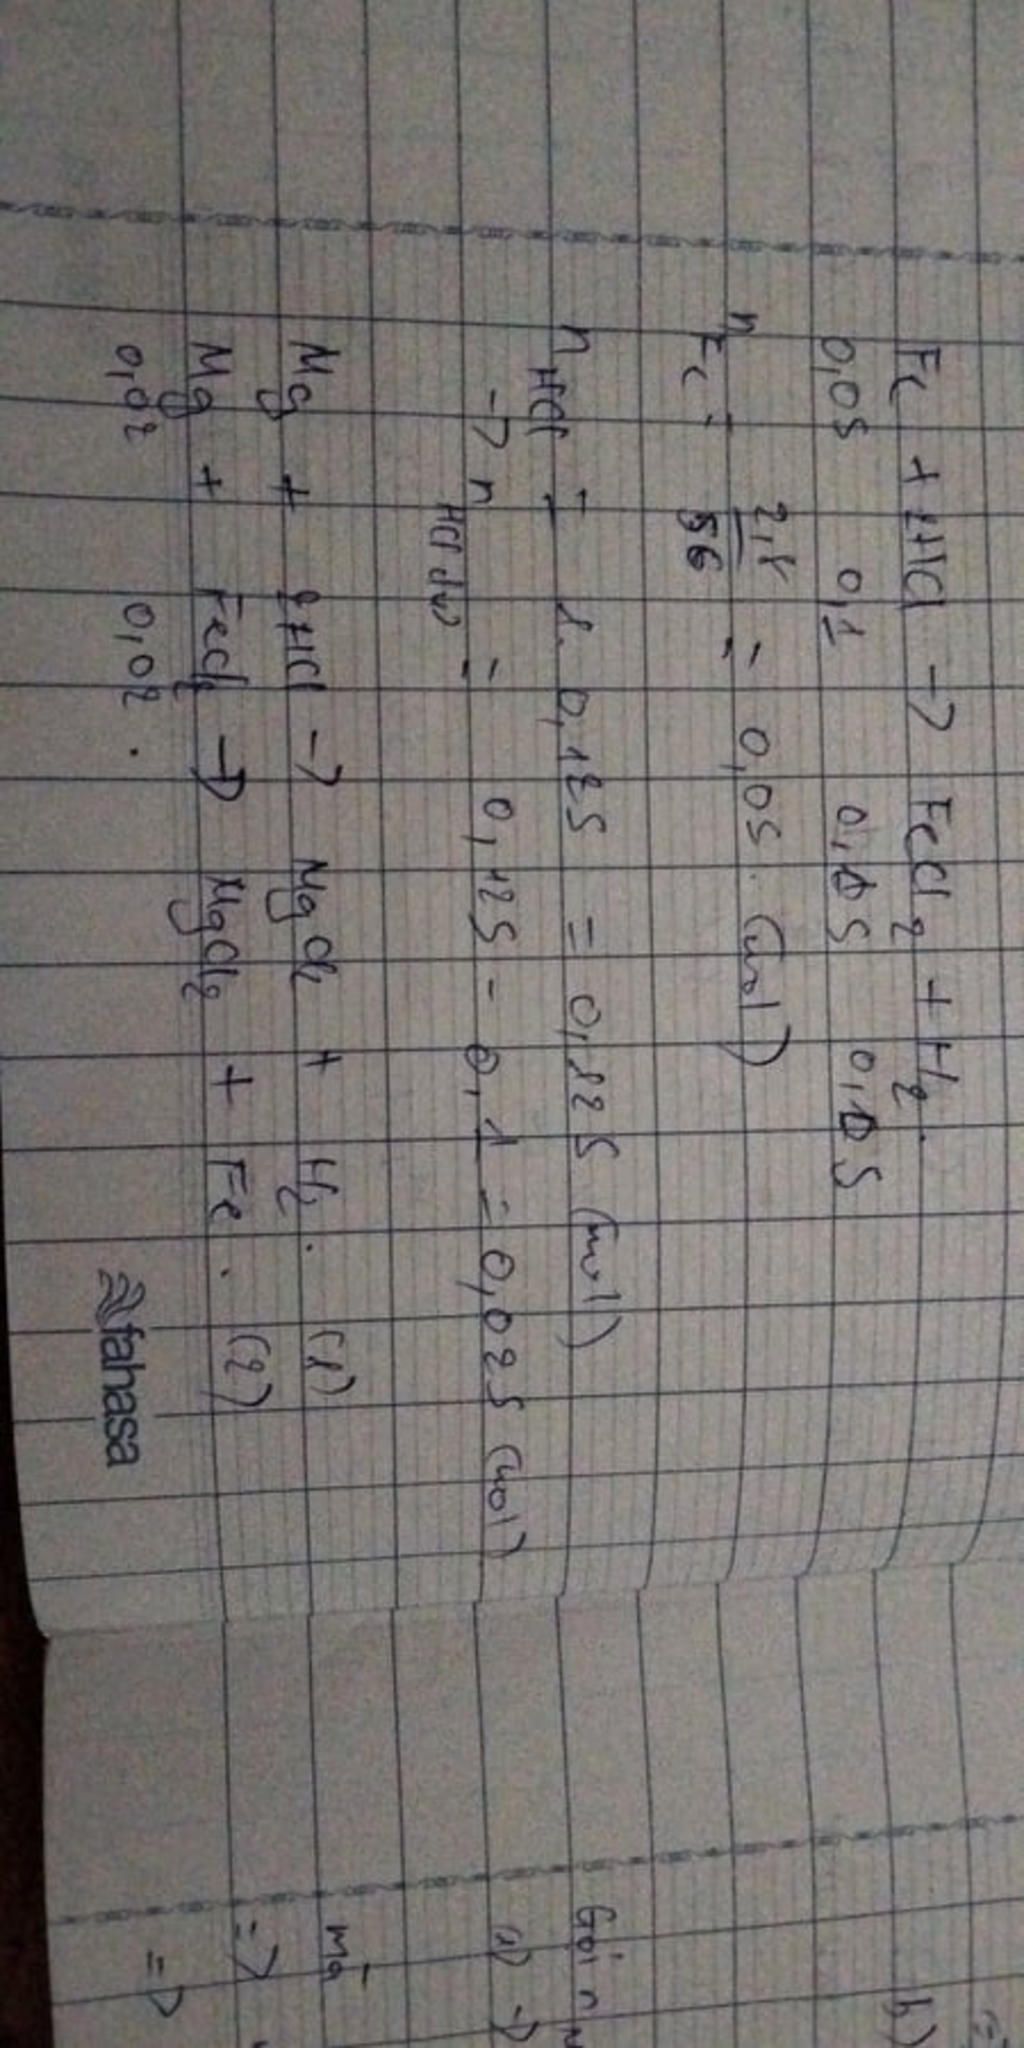 Fe + HCl → FeCl2 + H2.
0,05 0,1 0,05 0,05
nFe = 2,8/56 = 0,05 (mol)
nHCl = 1. 0,125 = 0,125 (mol)
→ nHCl dư = 0,125 - 0,1 = 0,025 (mol)
Mg + 2HCl → MgCl2 + H2. (1)
Mg + FeCl2 → MgCl2 + Fe. (2)
0,02 0,02.
fahasa
b)
Gọi n
(1) →
Mà
=>
=>